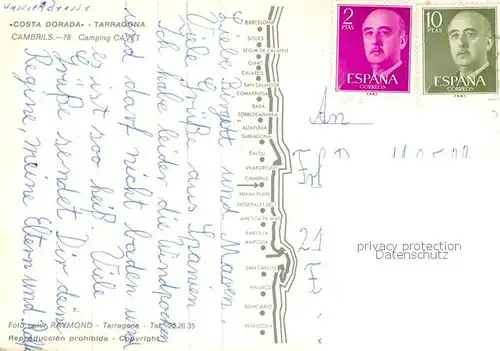 «COSTA DORADA» - TARRAGONA
CAMBRILS.-78 Camping CAVET
Liebe Birgitt und Maren,
Viele Grüße aus Spanien
Ich habe leider die Windpocken
und darf nicht baden und
es ist zoo heiß. Viele
Grüße sendet Dir deine
Regine, meine Eltern und Ralf
Foto color RAYMOND - Tarragona - Tel. 20 26 35
Reproducción prohibida - Copyright
BARCELONA
SITGES
CUNIT
CALAFELL
SAN SALVADOR
COMARRUGA
BARA
TORREDEMBARRA
ALTAFULLA
TARRAGONA
SALOU
VILAFORTUNY
CAMBRILS
MIAMI PLAYA
HOSPITALET DEL I.
AMETLLA DE MAR
AMPOLLA
AMPOSTA
SAN CARLOS
VINAROZ
BENICARLO
PEÑISCOLA
2
PTAS
ESPAÑA
CORREOS
10
PTAS
ESPAÑA
CORREOS
An
21
privacy protection
watermark